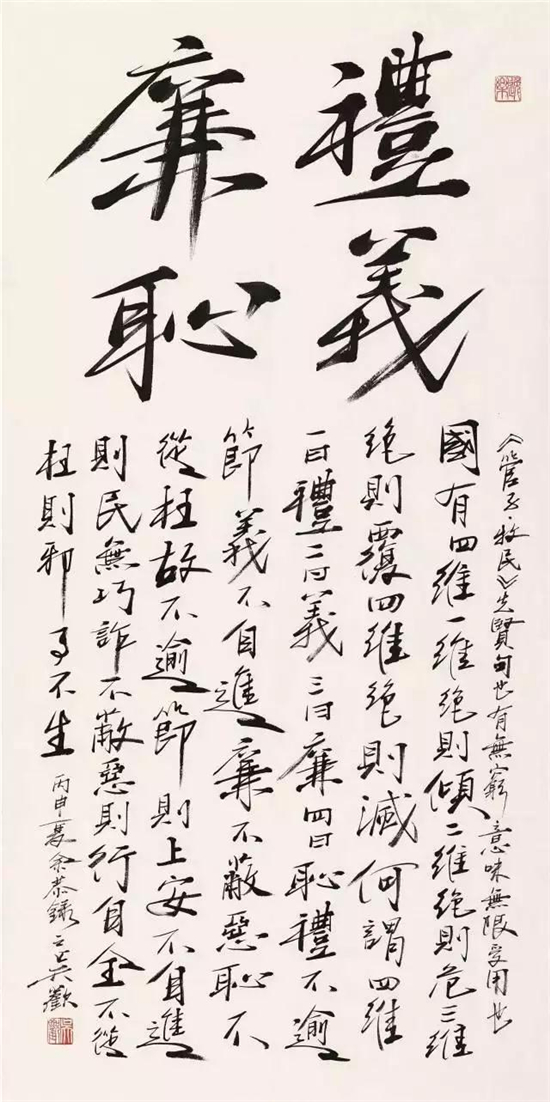 禮義
廉恥
《管子·牧民》先賢句也有無窮意味無限受用也
國有四維一維絕則傾二維絕則危三維
絕則覆四維絕則滅何謂四維
一曰禮二曰義三曰廉四曰恥禮不逾
節義不自進廉不蔽惡恥不
從枉故不逾節則上安不自進
則民無巧詐不蔽惡則行自全不從
枉則邪事不生
丙申夏余恭録之吳歡